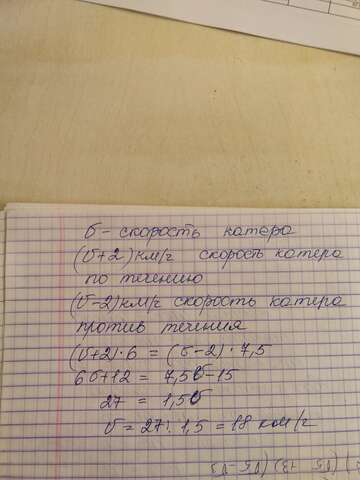 σ - скорость катера
(σ+2) км/ч скорость катера
по течению
(σ-2) км/ч скорость катера
против течения
(σ+2)·6 = (σ-2)·7,5
6σ+12 = 7,5σ-15
27 = 1,5σ
σ = 27 : 1,5 = 18 км/ч